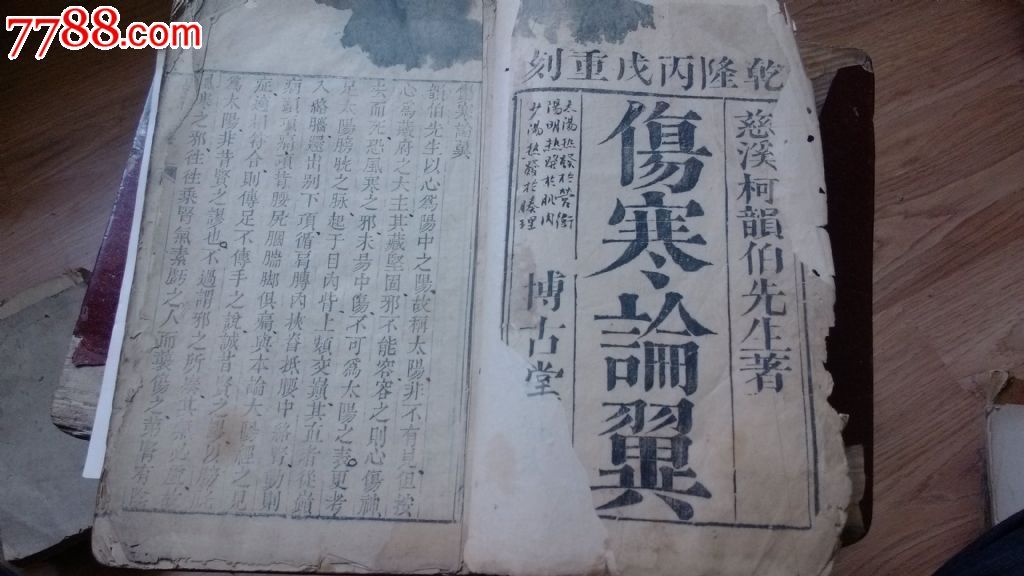 7788.com
乾隆丙戌重刻
慈溪柯韻伯先生著
傷寒論翼
太陽热發於营衛
陽明热發於肌肉
少陽热發於腠理
博古堂
傷寒論翼
韻伯先生以心爲陽中之陽故稱太陽非不有見但按
心爲藏府之大主其藏堅固邪不能容容之則心傷神
去而死恐風寒之邪未易中傷不可爲太陽之表更考
足太陽膀胱之脉起于目內眥上額交巔其直者從巔
入絡腦還出別下項循肩膊內挾脊抵腰中絡腎
病頭項痛項背腰尻膕腨脚俱痛與本論太陽經之見
症適相符合則傳足不傳手之說誠昔賢之
爲太陽非昔賢之謬也不過謂邪之所湊其氣必虛
風寒之邪往往乘腎氣素虧之人而襲傷之